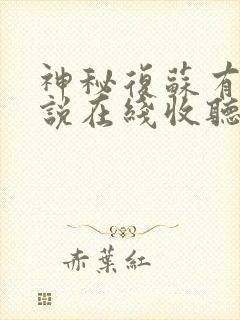 神秘復蘇有
說在綫收聽
赤葉紅